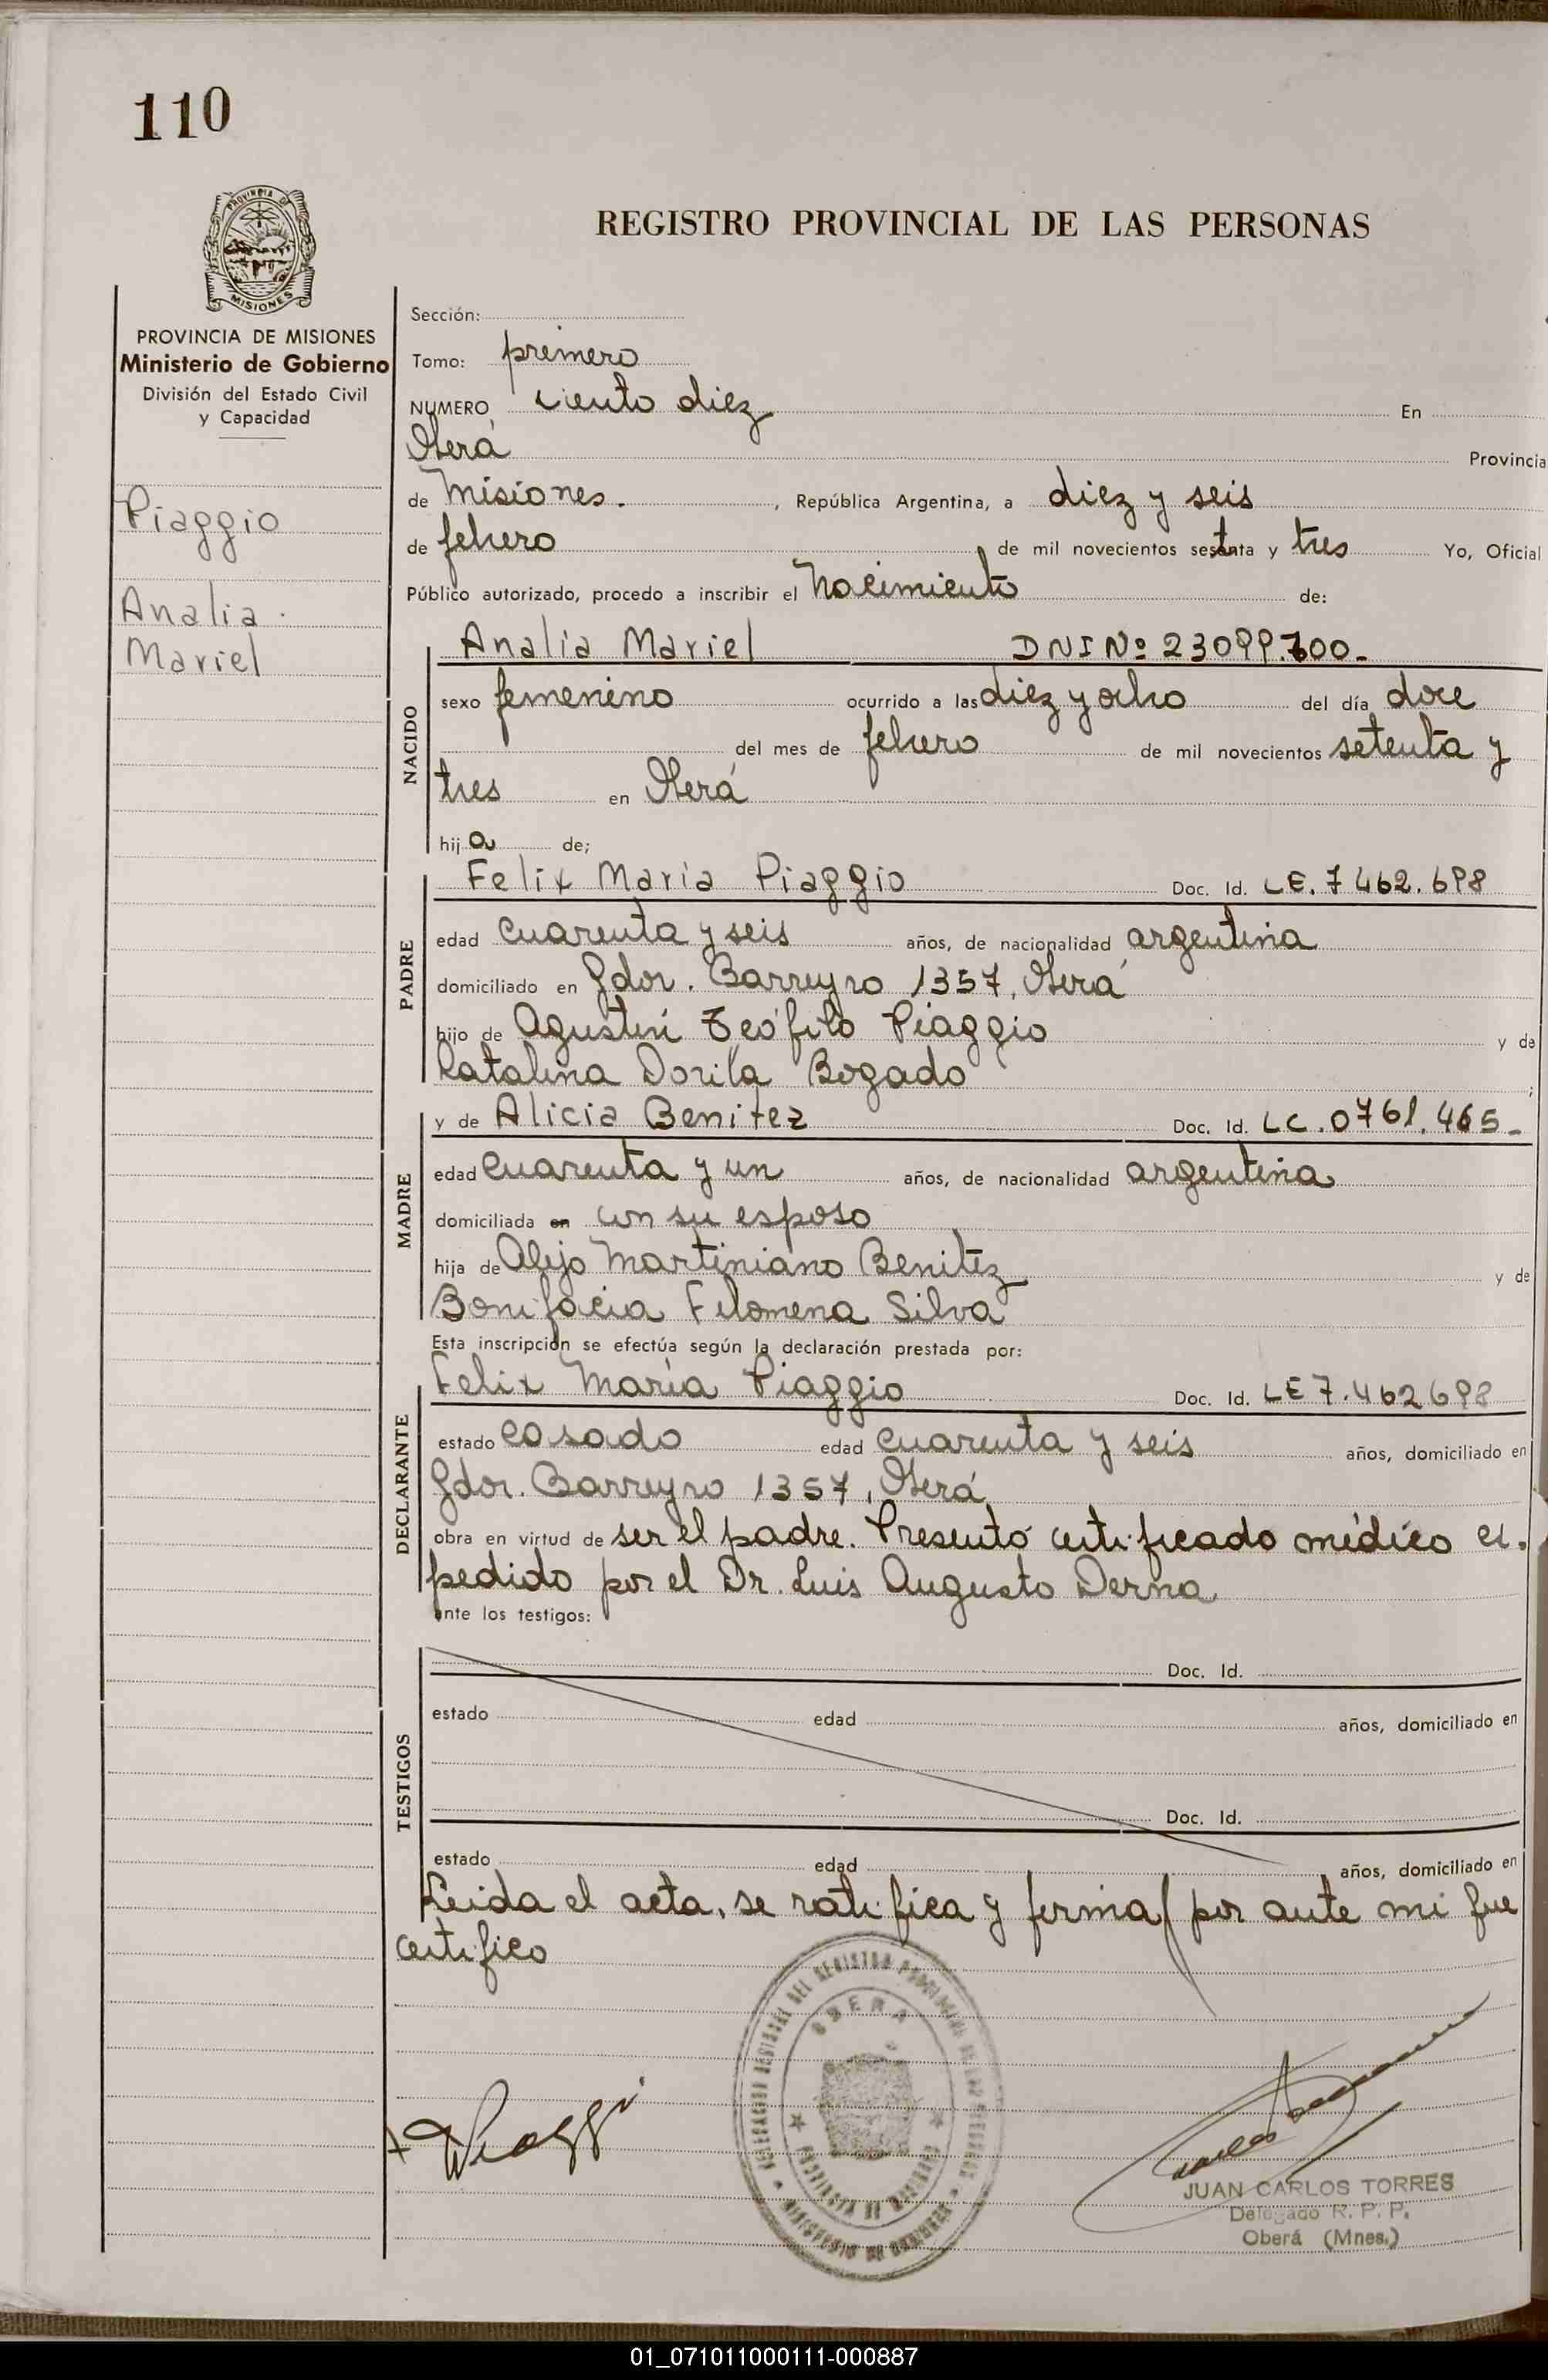 110
PROVINCIA DE
MISIONES
REGISTRO PROVINCIAL DE LAS PERSONAS
PROVINCIA DE MISIONES
Ministerio de Gobierno
División del Estado Civil
y Capacidad
Piaggio
Analia
Mariel
Sección:
Tomo: primero
NUMERO ciento diez En
Oberá Provincia
de Misiones. , República Argentina, a diez y seis
de febrero de mil novecientos setenta y tres Yo, Oficial
Público autorizado, procedo a inscribir el Nacimiento de:
NACIDO
Analia Mariel DNI Nº 23099.700.-
sexo femenino ocurrido a las diez y ocho del día doce
del mes de febrero de mil novecientos setenta y
tres en Oberá
hij a de;
PADRE
Felix Maria Piaggio Doc. Id. LE. 7 462. 698
edad cuarenta y seis años, de nacionalidad argentina
domiciliado en Gdor. Barreyro 1357, Oberá
hijo de Agustín Teófilo Piaggio y de
Catalina Dorila Bogado ;
MADRE
y de Alicia Benitez Doc. Id. LC. 0761. 465_
edad cuarenta y un años, de nacionalidad argentina
domiciliada en con su esposo
hija de Alejo Martiniano Benitez y de
Bonifacia Filomena Silva
Esta inscripción se efectúa según la declaración prestada por:
DECLARANTE
Felix María Piaggio Doc. Id. LE 7.462698
estado casado edad cuarenta y seis años, domiciliado en
Gdor. Barreyro 1357, Oberá
obra en virtud de ser el padre. Presentó certificado médico ex.
pedido por el Dr. Luis Augusto Derna
ante los testigos:
TESTIGOS
Doc. Id.
estado edad años, domiciliado en
Doc. Id.
estado edad años, domiciliado en
Leida el acta, se ratifica y firma por ante mi que
certifico
OBERA
Piaggio
JUAN CARLOS TORRES
Delegado R. P. P.
Oberá (Mnes.)
01_071011000111-000887